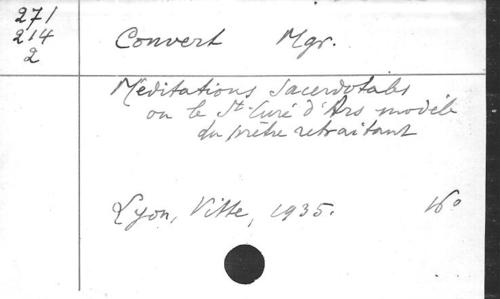 271
214
2
Convert Mgr.
Méditations sacerdotales
ou le St Curé d'Ars modèle
du prêtre retraitant
Lyon, Vitte, 1935. 16°